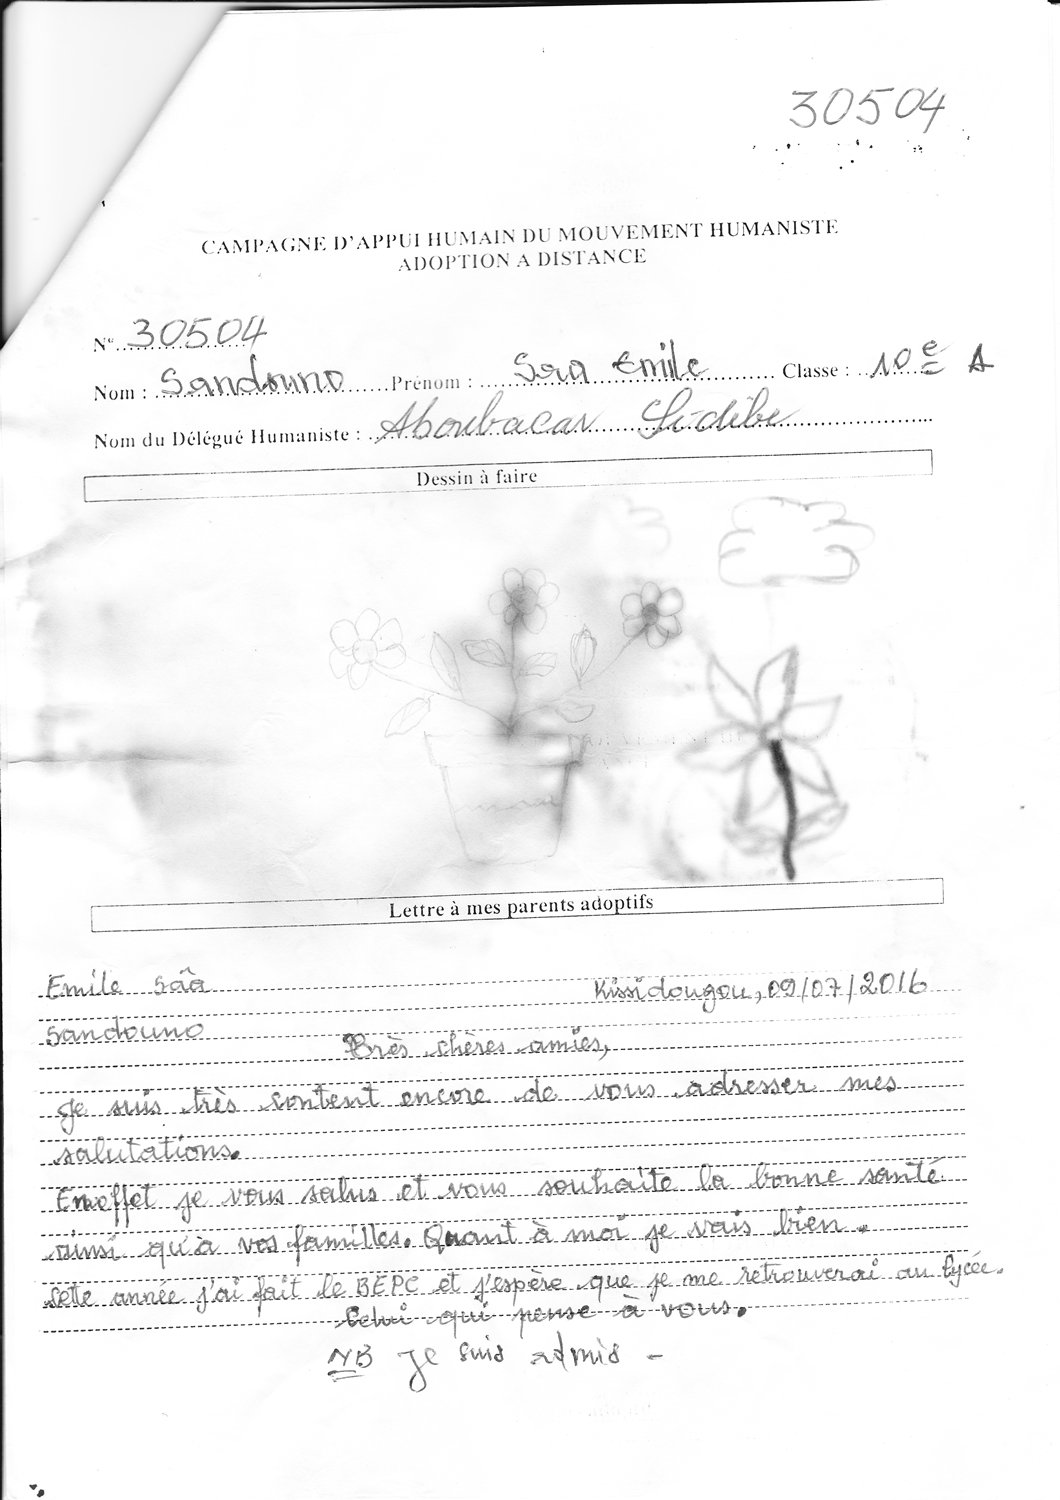 30504
CAMPAGNE D'APPUI HUMAIN DU MOUVEMENT HUMANISTE
ADOPTION A DISTANCE
N° 30504
Nom : Sandouno Prénom : Saa Emile Classe : 10e A
Nom du Délégué Humaniste : Aboubacar Sidibe
Dessin à faire
Lettre à mes parents adoptifs
Emile Sâa Kissidougou, 09/07/2016
Sandouno
Très chères amies,
Je suis très content encore de vous adresser mes
salutations.
En effet je vous salus et vous souhaite la bonne santé
ainsi qu'à vos familles. Quant à moi je vais bien.
Sette année j'ai fait le BEPC et j'espère que je me retrouverai au lycée.
Celui qui pense à vous.
NB Je suis admis -